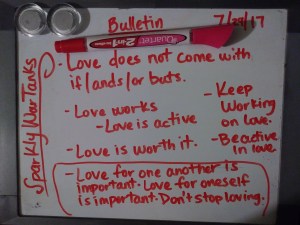 Bulletin
7/27/17
Sparkly War Tanks
Quartet
2 in 1
- Love does not come with
if/ands/or buts.
- Love works
- Love is active
- Love is worth it.
- Keep
Working
on love.
- Be active
in love
- Love for one another is
important. Love for oneself
is important. Don't stop loving.